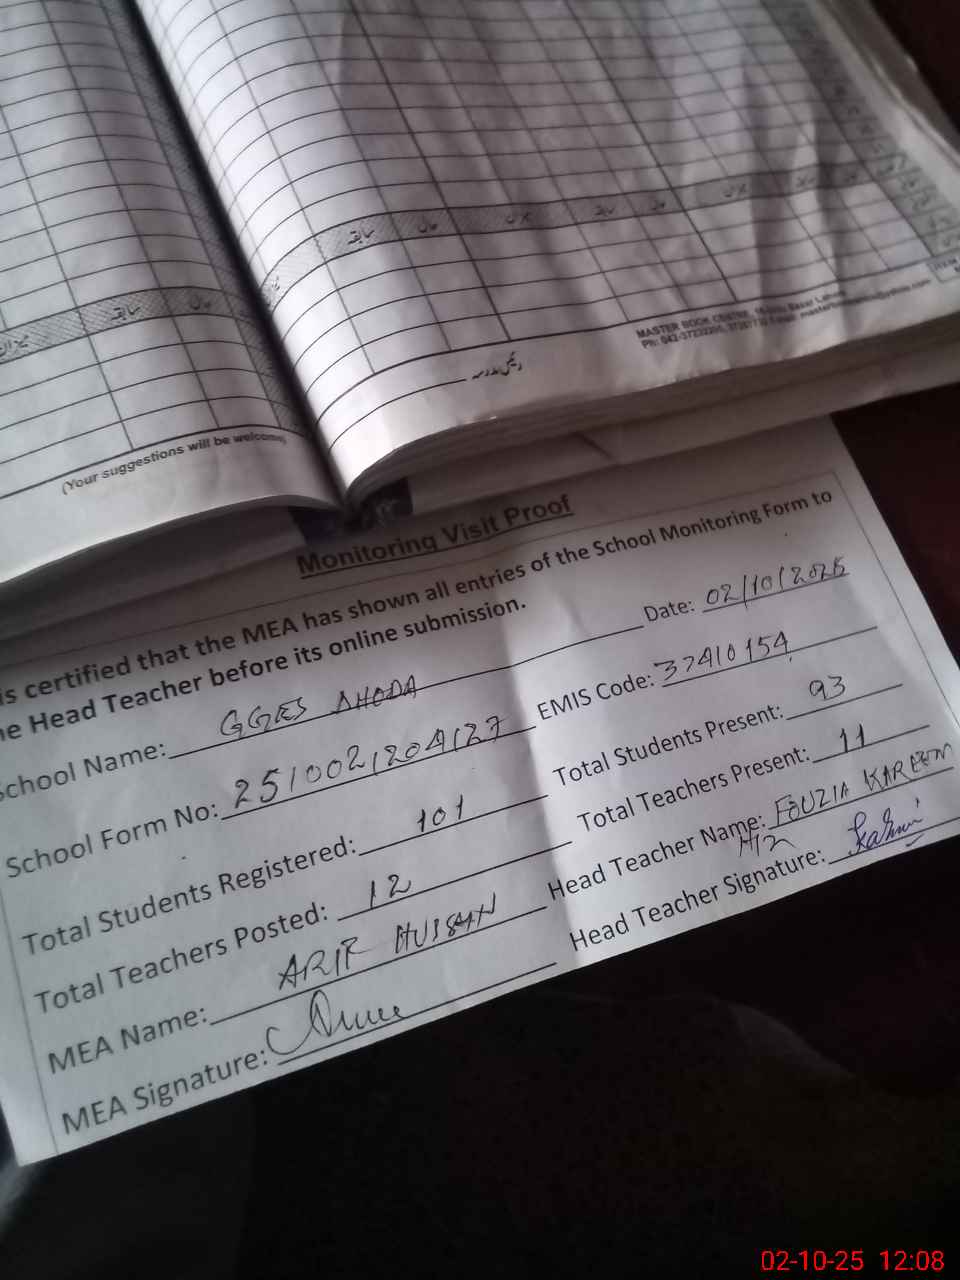 سابقہ
حال
میزان
سابقہ
حال
میزان
میزان
سابقہ
حال
MASTER BOOK CENTRE,
Ph: 042-37232205,
رئیس مدرسہ
(Your suggestions will be welcome)
Monitoring Visit Proof
is certified that the MEA has shown all entries of the School Monitoring Form to
he Head Teacher before its online submission.
Date: 02/10/2025
School Name: GGES DHODA
EMIS Code: 37410154
School Form No: 2510021204127
Total Students Present: 93
Total Students Registered: 101
Total Teachers Present: 11
Total Teachers Posted: 12
Head Teacher Name: FOUZIA KAREEM
MEA Name: ARIF HUSSAN
Head Teacher Signature:
MEA Signature:
02-10-25 12:08